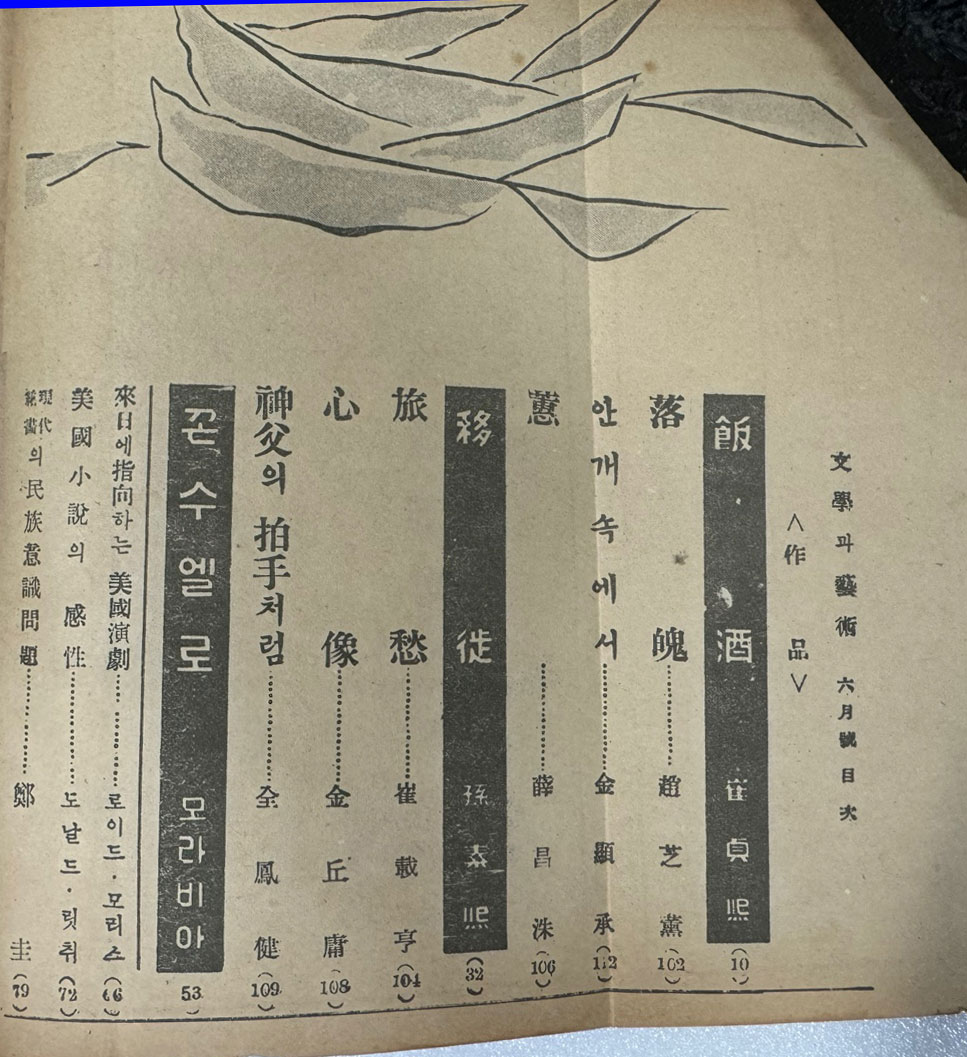 文學과 藝術 六月號目次
<作品>
飯酒 崔貞熙 (10)
落魄 趙芝薰 (102)
안개속에서 金顯承 (112)
蕙 薛昌洙 (106)
移徙 孫素熙 (32)
旅愁 崔載亨 (104)
心像 金丘庸 (108)
神父의 拍手처럼 全鳳健 (109)
꼰수엘로 모라비아 53
來日에指向하는 美國演劇 로이드·모리스 (66)
美國小說의 感性 도날드·릿취 (72)
現代繪畵의民族意識問題 鄭圭 (79)